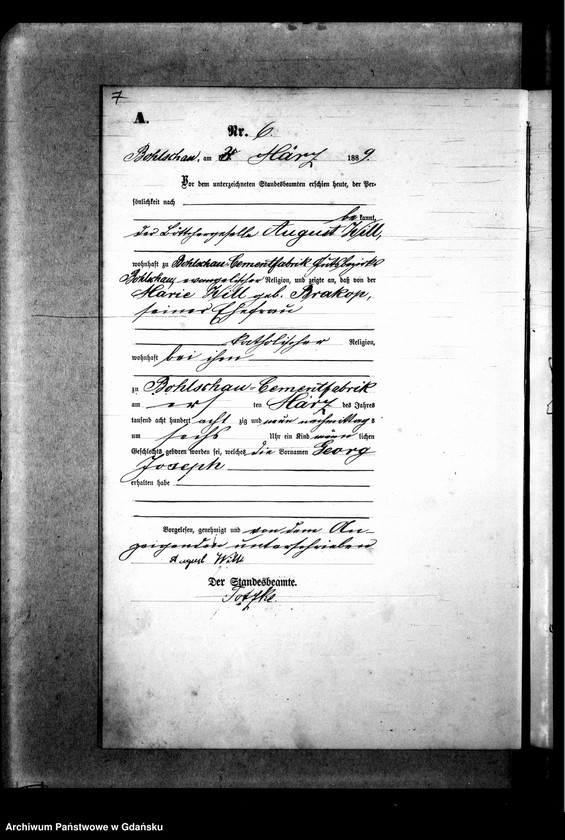 7
A.
Nr. 6.
Bohlschau, am März 1889.
Vor dem unterzeichneten Standesbeamten erschien heute, der Per-
sönlichkeit nach
be kannt,
der Böttchergeselle August Will,
wohnhaft zu Bohlschau-Cementfabrik Gutsbezirks
Bohlschau, evangelischer Religion, und zeigte an, daß von der
Marie Will geb. Brakop,
seiner Ehefrau
katholischer Religion,
wohnhaft bei ihm
zu Bohlschau-Cementfabrik
am ersten März des Jahres
tausend acht hundert acht zig und neun nachmittags
um sechs Uhr ein Kind männlichen
Geschlechts geboren worden sei, welches die Vornamen Georg
Joseph
erhalten habe
Vorgelesen, genehmigt und von dem An-
zeigenden unterschrieben
August Will
Der Standesbeamte.
Totzke.
Archiwum Państwowe w Gdańsku